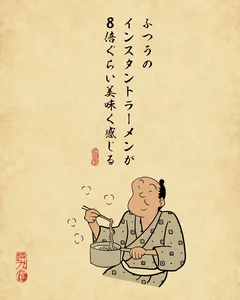 ふつうの
インスタントラーメンが
8倍ぐらい美味く感じる